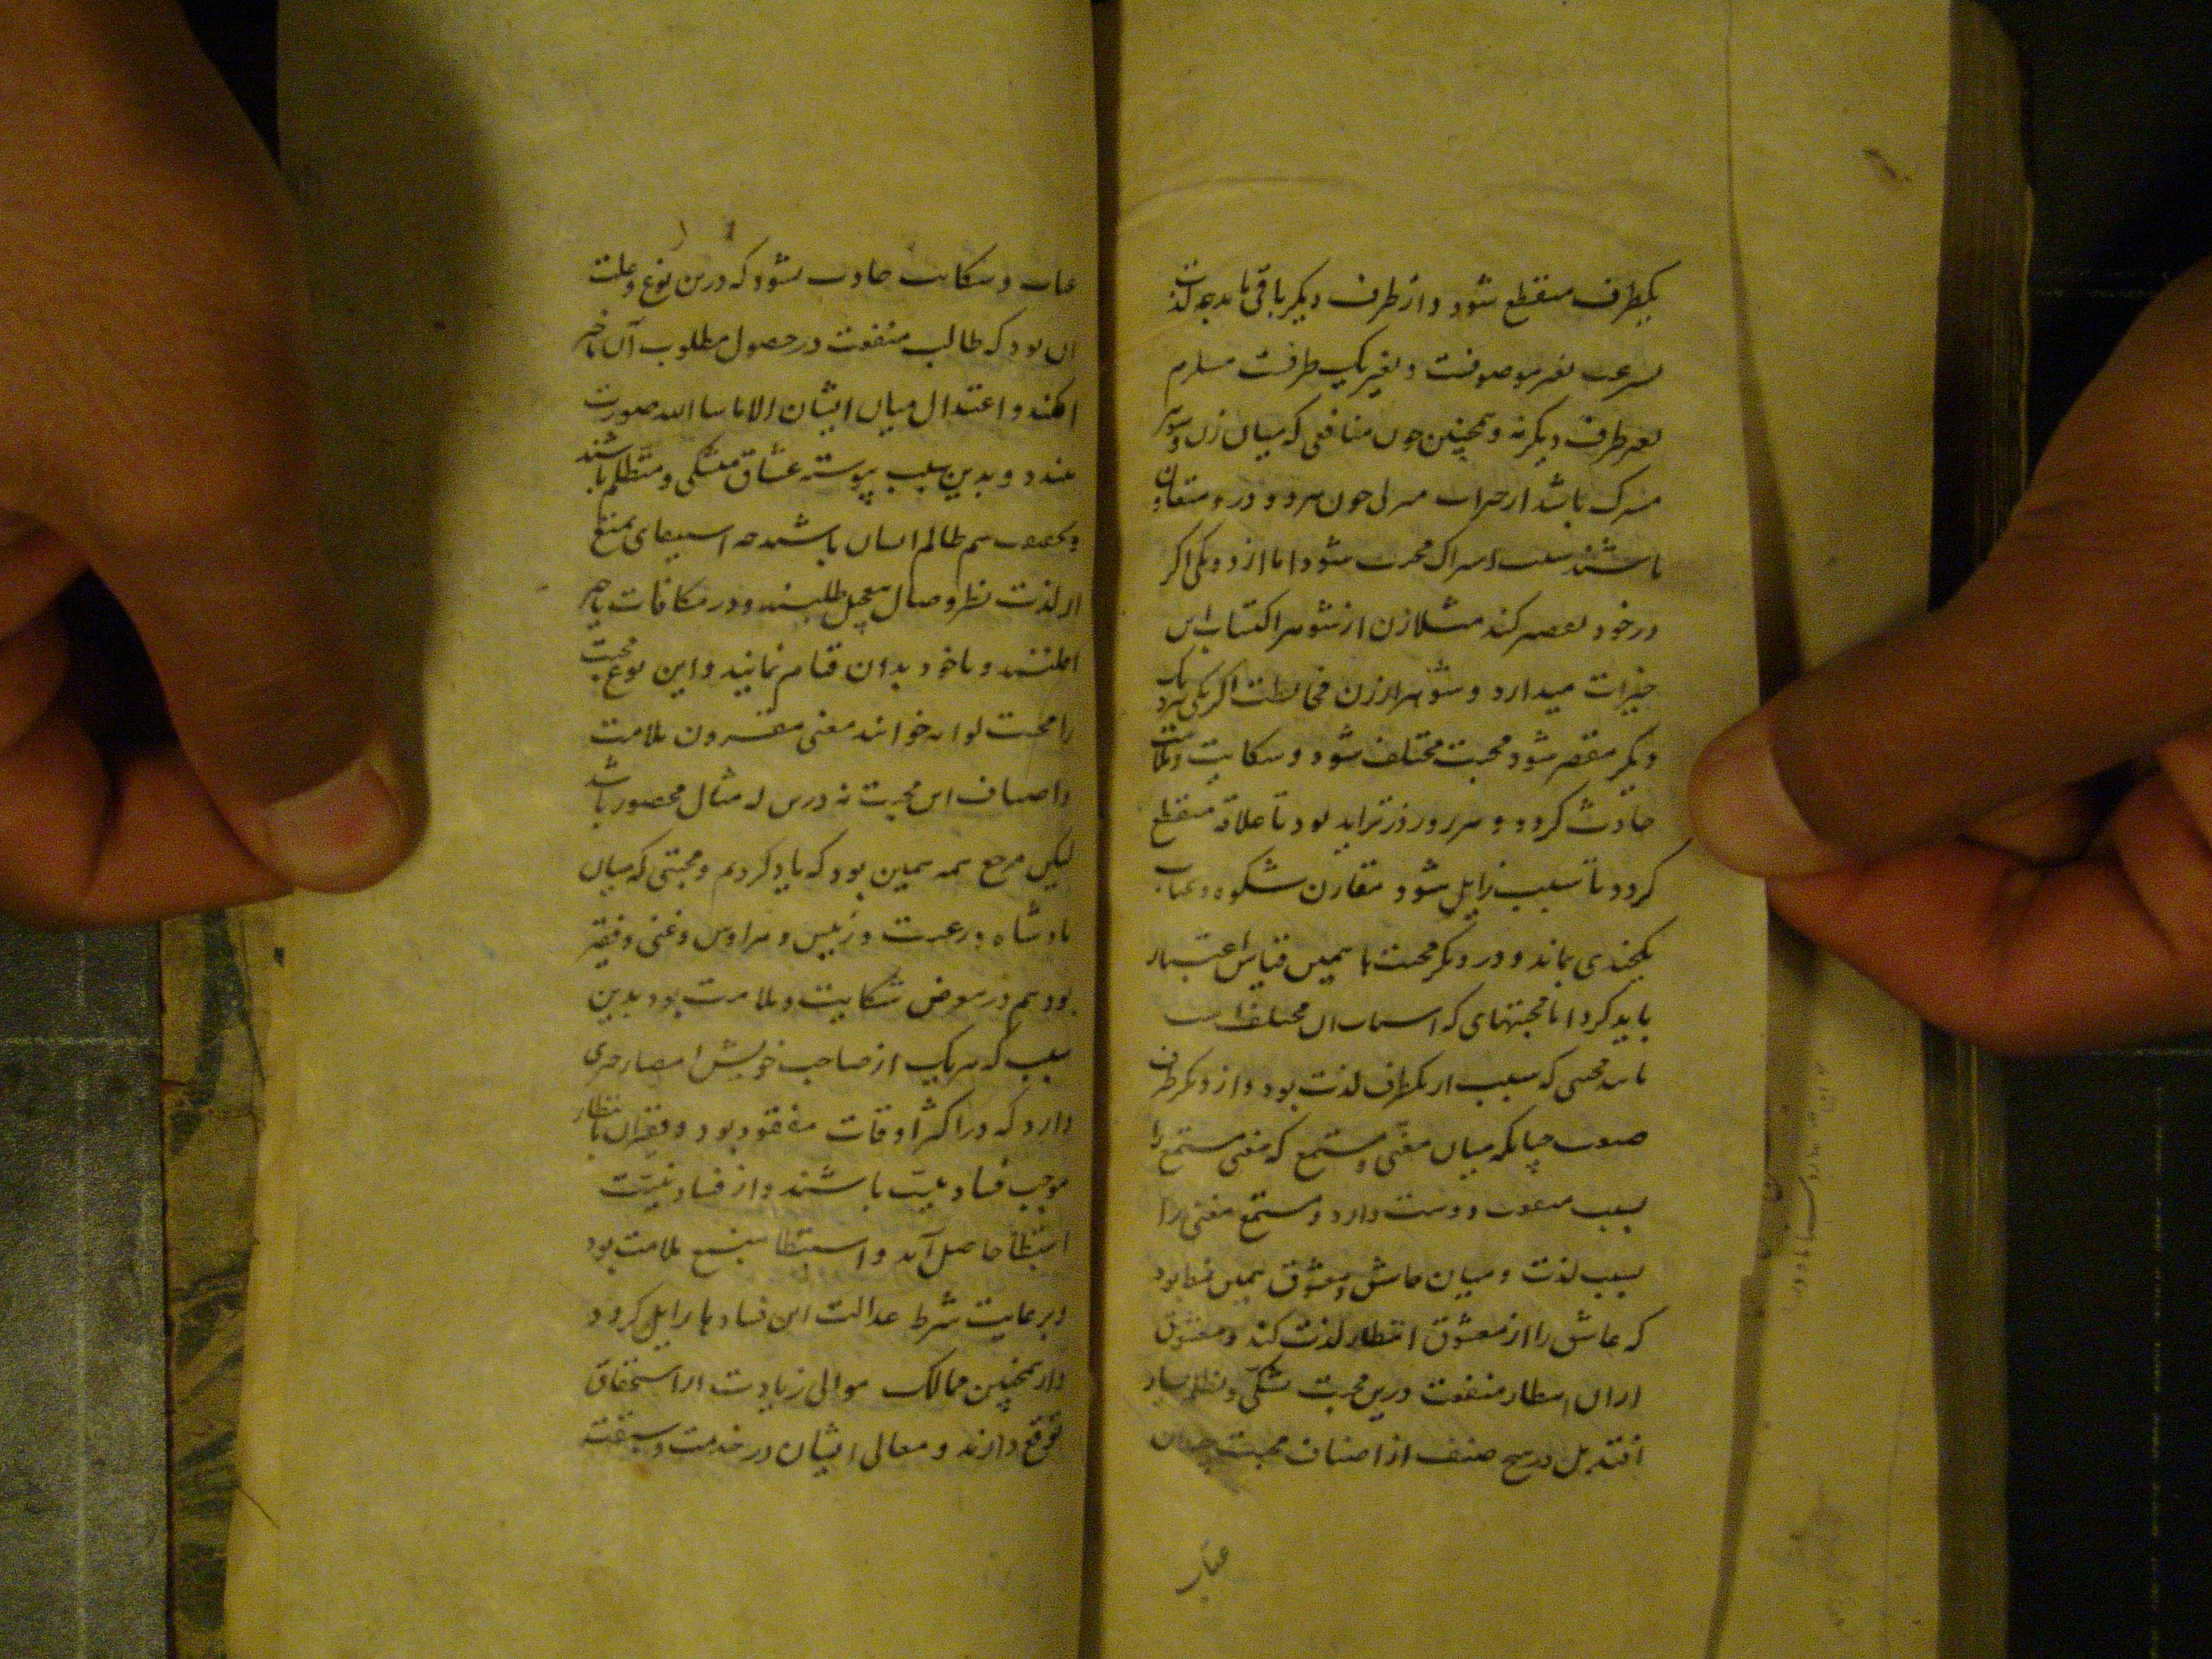 یکطرف منقطع شود و از طرف دیگر باقی ماند چه لذت
بسرعت تغیر موصوفست و تغیر یک طرف مستلزم
تغیر طرف دیگر نه و همچنین چون منافعی که میان زن و شوهر
مشترک باشد از خیرات منزلی چون هر دو در و متعاون
باشند سبب اشتراک محبت شود اما از دو یکی اگر
در خود تقصیر کند مثلا زن از شوهر اکتساب این
خیرات میدارد و شوهر از زن محافظت اگر یکی بنزدیک
دیگر مقصر شود محبت مختلف شود و شکایت و ملامت
حادث گردد و هر روز در تزاید بود تا علاقه منقطع
گردد تا سبب زایل شود مقارن شکوه و عتاب
یکچندی بماند و در دیگر محبت با همین قیاس اعتبار
باید کرد اما محبتهای که اسباب آن مختلف است
مانند محبتی که سبب از یکطرف لذت بود و از دیگر طرف
منفعت چنانکه میان مغنی و مستمع که مغنی مستمع را
بسبب منفعت دوست دارد و مستمع مغنی را
بسبب لذت و میان عاشق و معشوق همین نمط بود
که عاشق را از معشوق انتظار لذت کند و معشوق
از آن انتظار منفعت درین محبت تشکی و تظلم بسیار
افتد بل در هیچ صنف از اصناف محبت چندان
عتاب
عتاب و شکایت حادث نشود که درین نوع و علت
آن بود که طالب منفعت در حصول مطلوب آن تاخیر
افکند و اعتدال میان ایشان الا ماشا الله صورت
نبندد و بدین سبب پیوسته عشاق متشکی و متظلم باشند
و بحقیقت هم ظالم ایشان باشند چه استیفای تمتع
از لذت نظر و وصال بتعجیل طلبند و در مکافات تاخیر
افکنند و یا خود بدان قیام ننمایند و این نوع محبت
را محبت لوامه خوانند معنی مقرون ملامت
و اصناف این محبت نه درین یک مثال محصور باشد
لیکن مرجع همه همین بود که یاد کردیم و محبتی که میان
پادشاه و رعیت و رئیس و مرؤوس و غنی و فقیر
بود هم در معرض شکایت و ملامت بود بدین
سبب که هر یک از صاحب خویش انتظار چیزی
دارد که در اکثر اوقات مفقود بود و فقدان با انتظار
موجب فساد نیت باشند و از فساد نیت
استبطا حاصل آید و استبطا مستتبع ملامت بود
و برعایت شرط عدالت این فسادها زایل گردد
و همچنین ممالیک موالی زیادت از استحقاق
توقع دارند و موالی ایشان در خدمت و شفقت